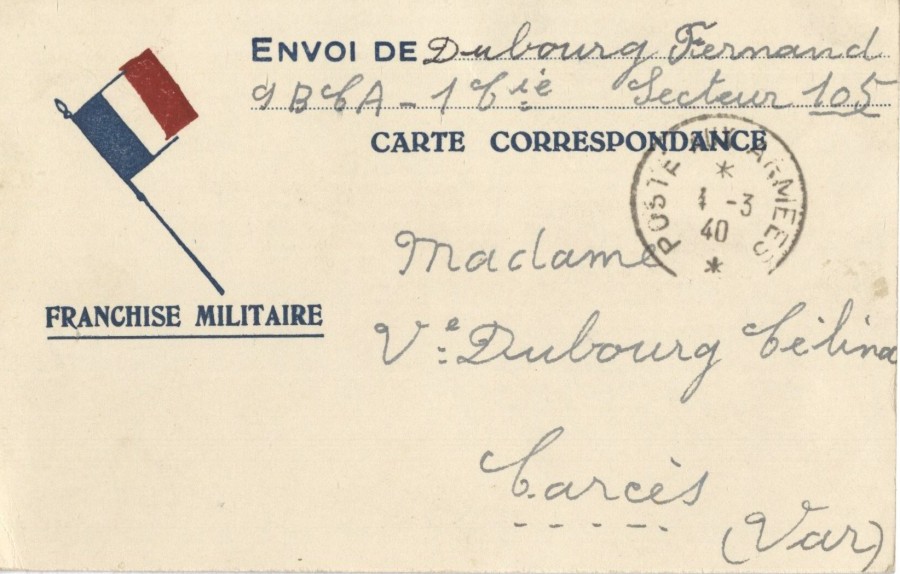 ENVOI DE Dubourg Fernand
9 BCA - 1 Cie Secteur 105
CARTE CORRESPONDANCE
POSTE AUX ARMEES
* 1 -3
40
*
FRANCHISE MILITAIRE
Madame
Ve Dubourg Célina
Carcès
(Var)